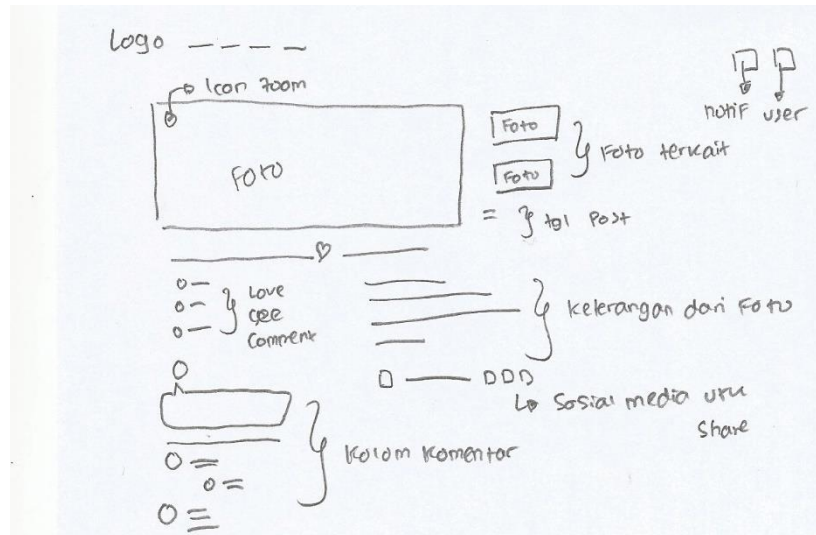 Logo
Icon zoom
notif user
Foto
Foto
Foto
Foto terkait
tgl Post
Love
See
Comment
Keterangan dari Foto
Sosial media utk
Share
Kolom Komentar